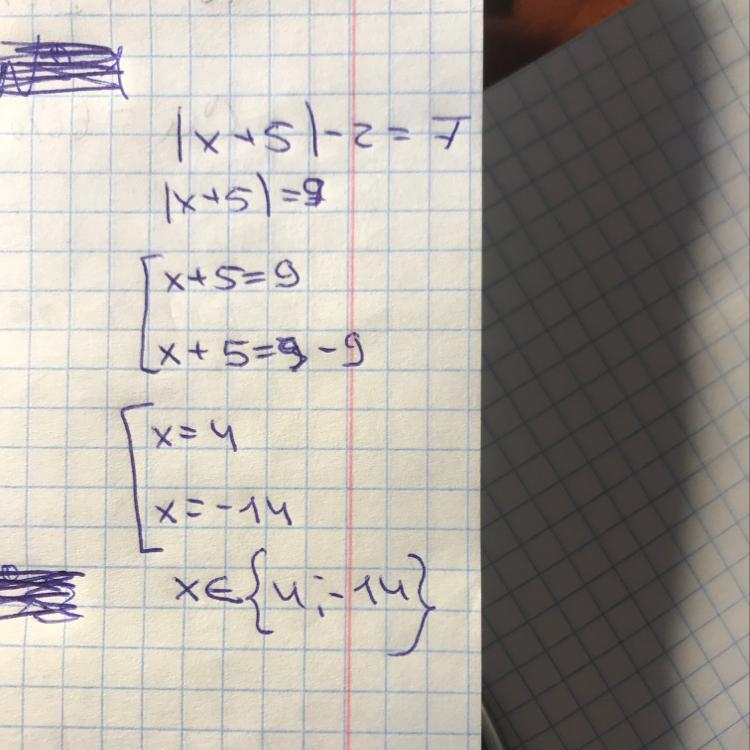 |x+5|-2=7
|x+5|=9
[x+5=9
x+5=-9
[x=4
x=-14
x∈{4;-14}